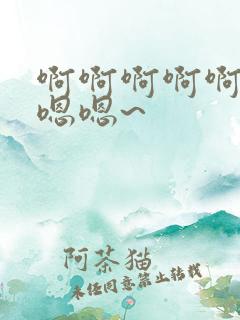 啊啊啊啊啊
嗯嗯~
阿茶猫
未经同意禁止转载